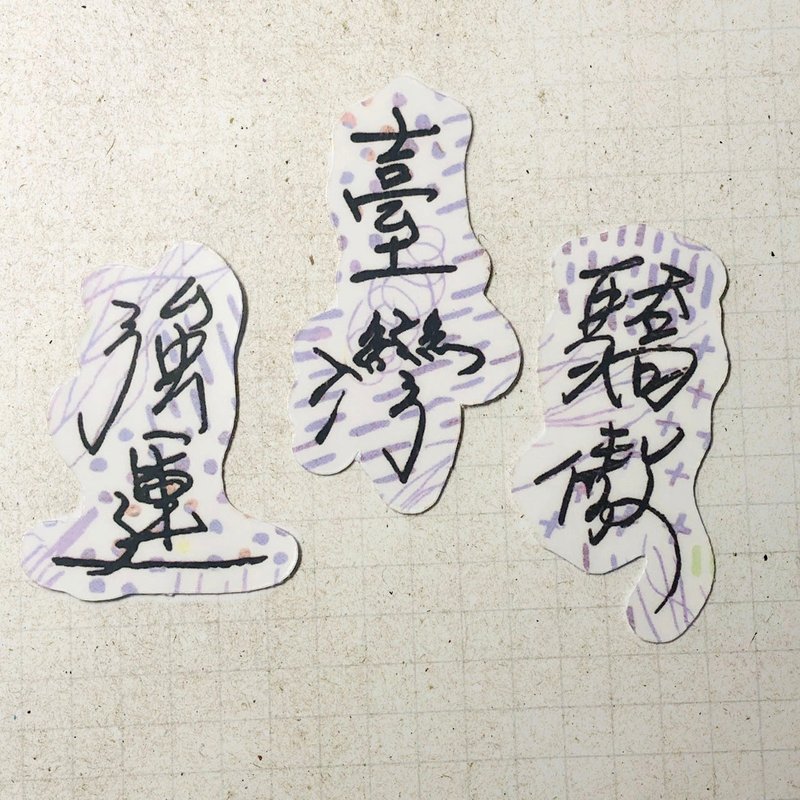 強運
臺灣
驕傲